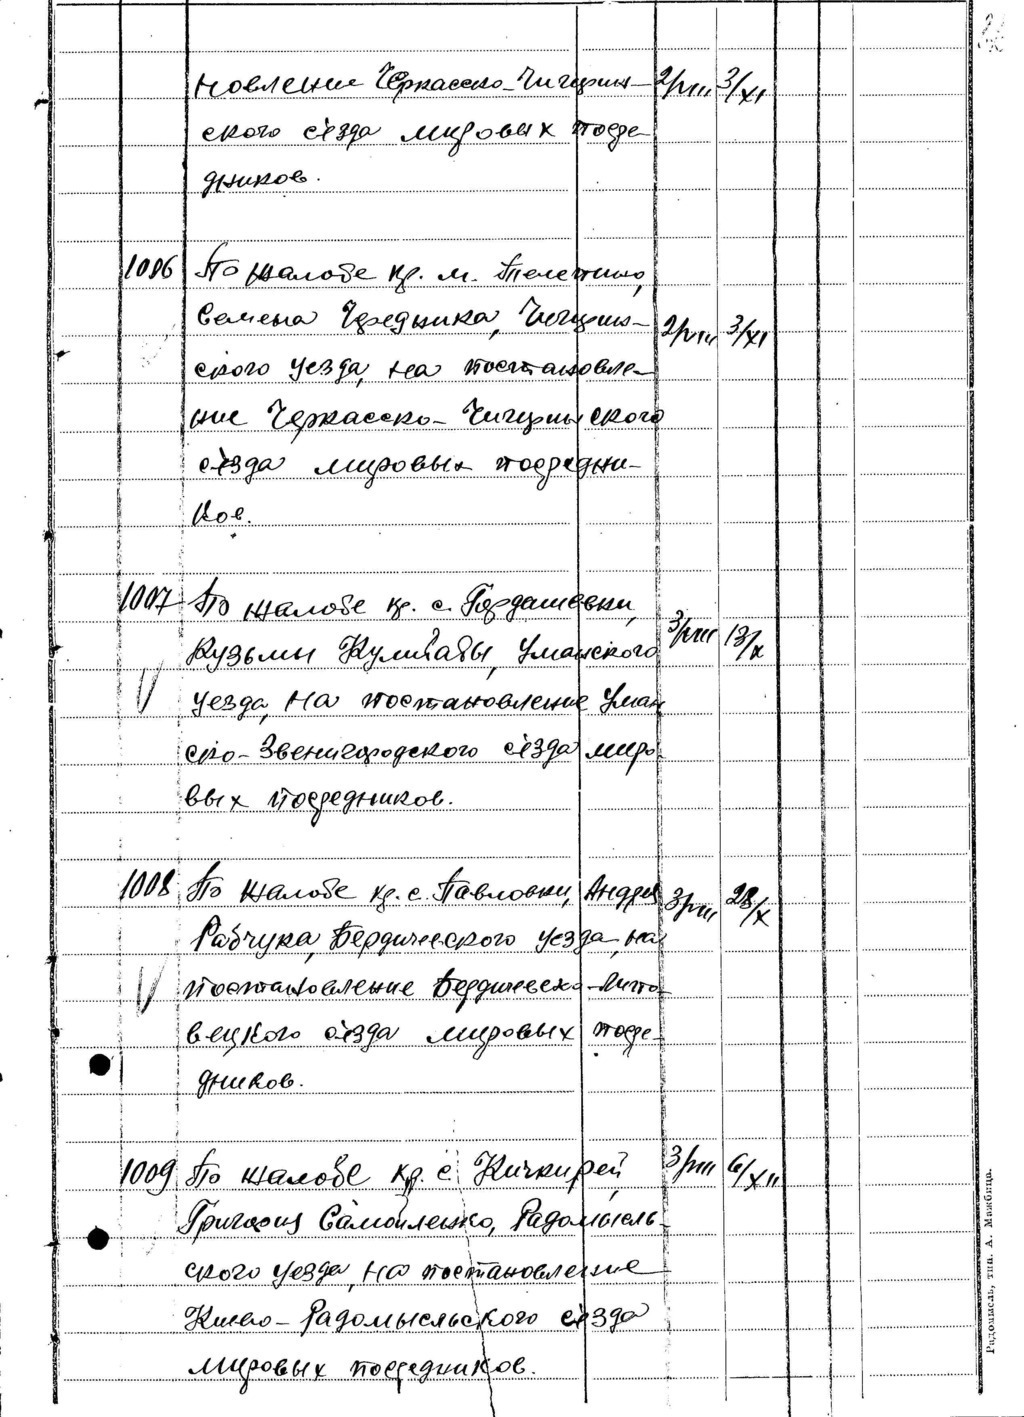 новление Черкасско-Чигирин- 2/VIII 3/XI
ского съезда мировых посре-
дников.
1006 По жалобе кр. м. Телепино,
Семена Чередника, Чигирин- 2/VIII 3/XI
ского уезда, на постановле-
ние Черкасско-Чигиринского
съезда мировых посредни-
ков.
1007 По жалобе кр. с. Гордашевки,
Кузьмы Кулибабы, Уманского 3/VIII 13/X
уезда, на постановление Уман
ско-Звенигородского съезда миро
вых посредников.
1008 По жалобе кр. с. Павловки, Андрея 3/VIII 28/X
Рабчука, Бердичевского уезда, на
постановление Бердичевско-Липо-
вецкого съезда мировых посре-
дников.
1009 По жалобе кр. с. Кичкирей, 3/VIII 6/XII
Григория Самойленко, Радомысль-
ского уезда, на постановление
Киево-Радомысльского съезда
мировых посредников.
Радомысль, тип. А. Мажбица.